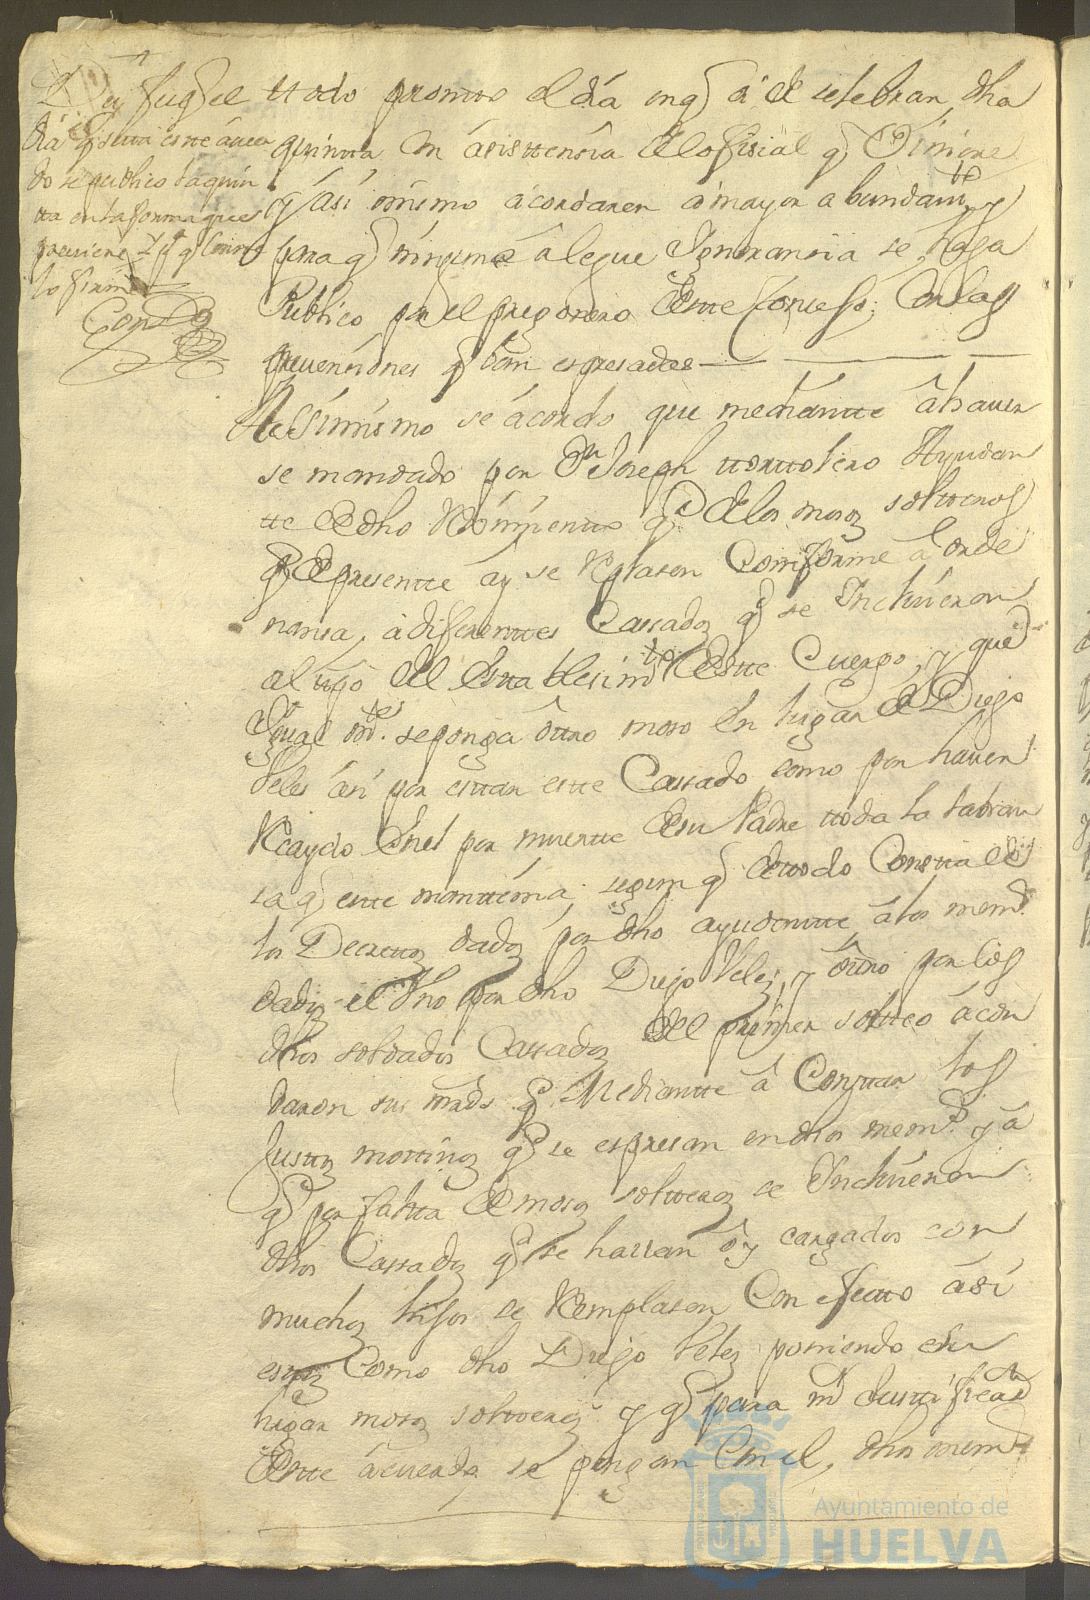 Doy fee q el
dia q se hiso este acuer
do se publico la quin
ta en la forma que se
previene y pa q conste
lo firme
ttodo promto el dia en q a de selebrar dha
quintta con asisttensia del ofisial q viniere
y asi mismo acordaron a mayor abundamto y
para q ninguno alegue Ignoransia se haga
Publico por el pregonero de este Consejo; Con las
prevensiones q ban espresadas
Assimismo se acordo que mediantte a haver
se mandado por Dn Joseph ttorttolero Ayudan
tte de dho Reximientto q de los mosos soltteros
q de presentte ay se Remplasen Comforme a orde
nansa, a diferenttes Cassados q se Incluieron
al tpo del esttablesimto de estte Cuerpo, y que
Igual mte se ponga ottro moso en lugar de Diego
Veles asi por esttar estte Cassado como por haver
Recaydo en el por muertte de su Padre ttoda la labran
sa q estte manttenia; segun q de ttodo Constta de
los Decrettos dados por dho ayudantte a los mem
dados el Uno por dho Diego Veles, y ottro por los
dhos soldados Cassados del primer sortteo acor
daron sus mrds q Mediantte a Consttar los
Justtos mottivos q se espresan en dhos mem y a
q por faltta de mosos soltteros se Incluieron
dhos Cassados q se hallan oy cargados con
muchos hijos se Remplasen Con efectto asi
esttos Como dho Diego Veles poniendo en su
lugar mosos soltteros y q para mr Justtificaon
de estte acuerdo se pongan Con el, dhos mem
Ayuntamiento de
HUELVA